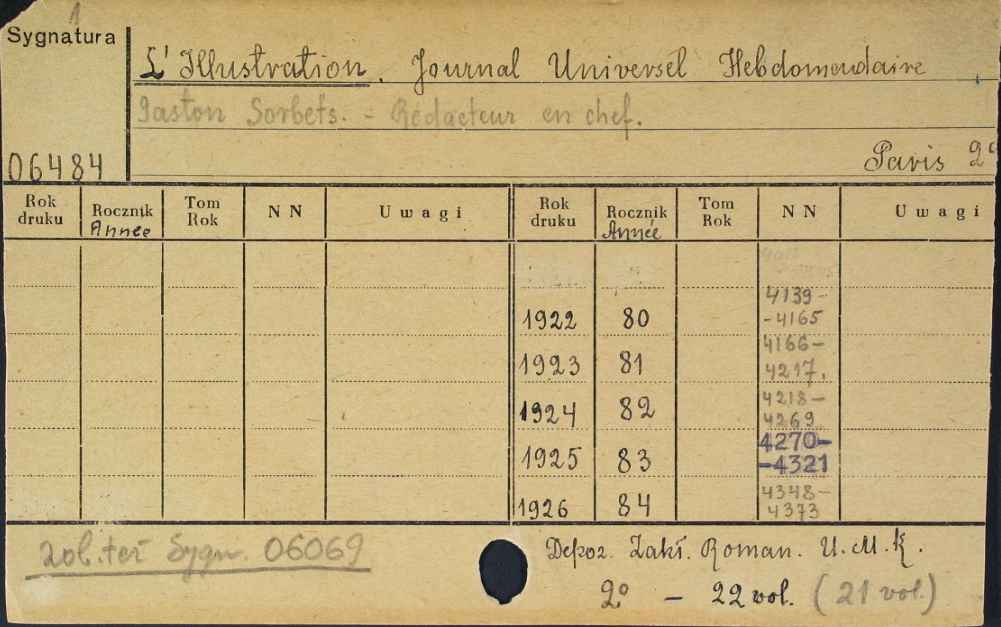 1
Sygnatura
L'Illustration. Journal Universel Hebdomendaire
Gaston Sorbets. - Rédacteur en chef.
06484
Paris 2°
Rok druku Rocznik Année Tom Rok NN Uwagi Rok druku Rocznik Année Tom Rok NN Uwagi
1922 80 4139-
-4165
1923 81 4166-
4217.
1924 82 4218-
4269
1925 83 4270-
-4321
1926 84 4348-
4373
zob. też Sygn. 06069
Depoz. Zakł. Roman. U.M.K.
2° - 22 vol. (21 vol.)